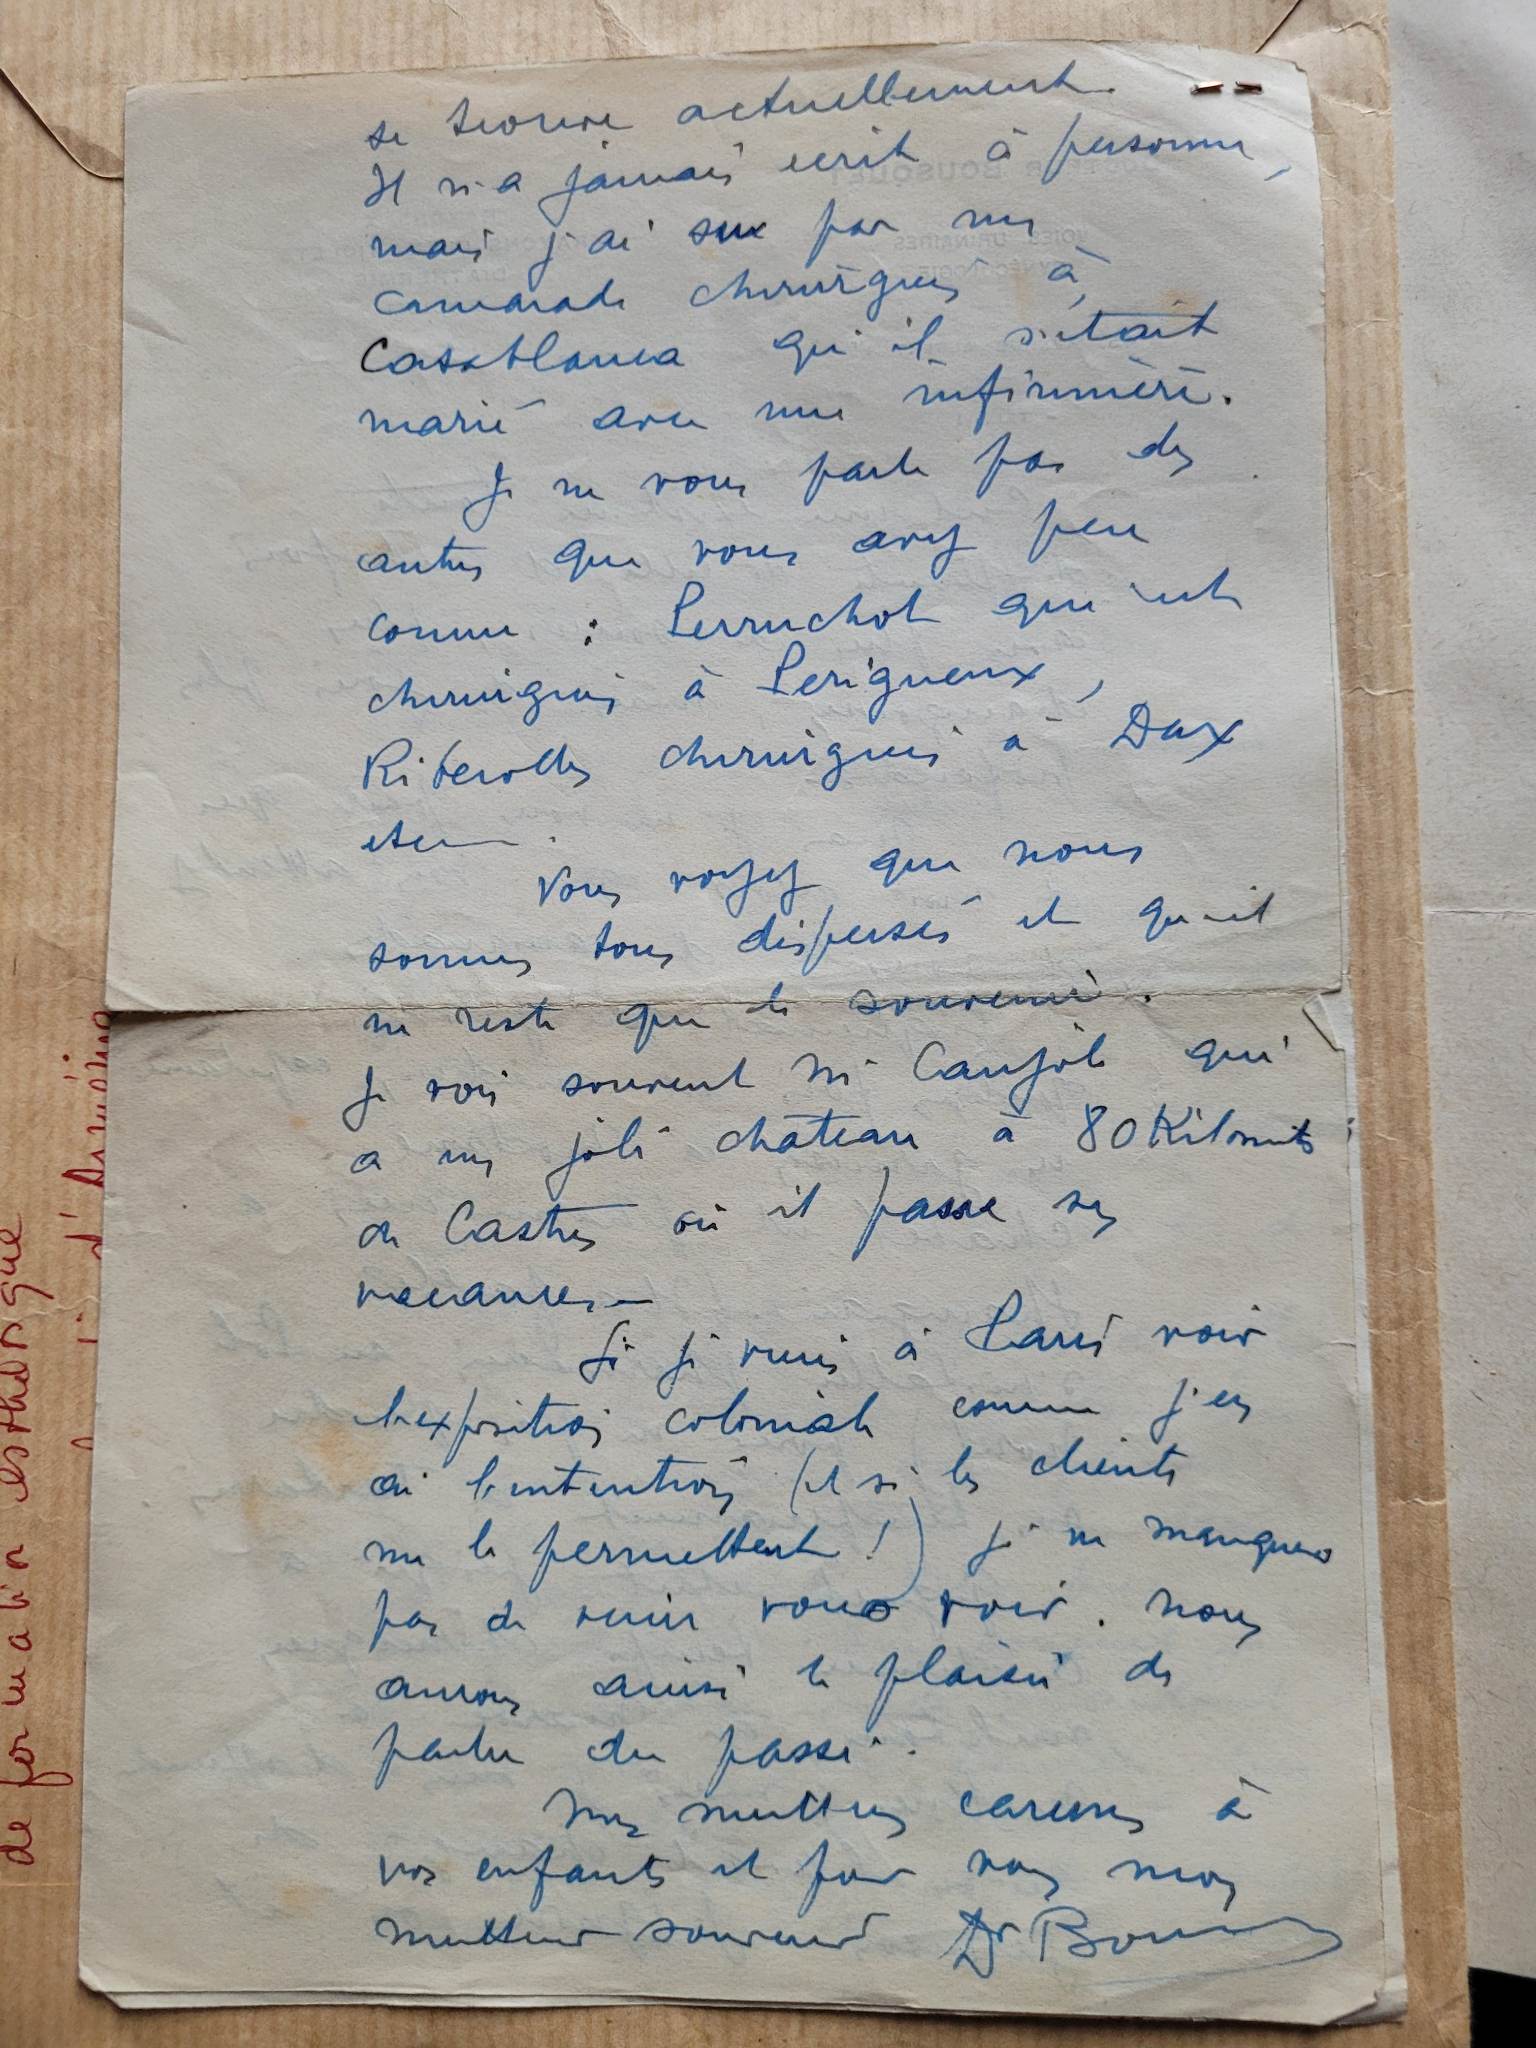 se trouve actuellement.
Il n'a jamais ecrit à personne,
mais j'ai su par un
camarade chirurgien à
Casablanca qu'il s'était
marié avec une infirmière.
Je ne vous parle pas des
autres que vous avez peu
connu : Perruchot qui est
chirurgien à Perigueux,
Riberolles chirurgien à Dax
etc.
Vous voyez que nous
sommes tous dispersés et qu'il
ne reste que le souvenir.
Je vois souvent Mr Caujole qui
a un joli chateau à 80 Kilomets
de Castres où il passe ses
vacances.
Si je viens à Paris voir
l'exposition coloniale comme j'en
ai l'intention (et si les clients
me le permettent !) je ne manquerai
pas de venir vous voir. Nous
aurons ainsi le plaisir de
parler du passé.
Mes meilleures caresses à
vos enfants et pour vous mon
meilleur souvenir Dr Bousquet
de formation esthétique
BOUSQUET
VOIES URINAIRES